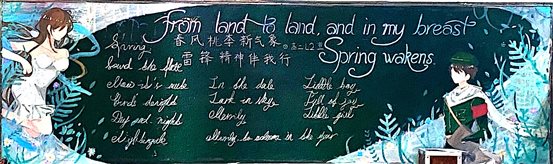 From land to land, and in my breast
Spring wakens.
春风桃李新气象 高二12班
雷锋精神伴我行
Spring
Sound the flute
Now it's mute
Birds delight
Day and night
Nightingale
In the dale
Lark in sky
Merrily
Merrily to welcome in the year
Little boy
Full of joy
Little girl